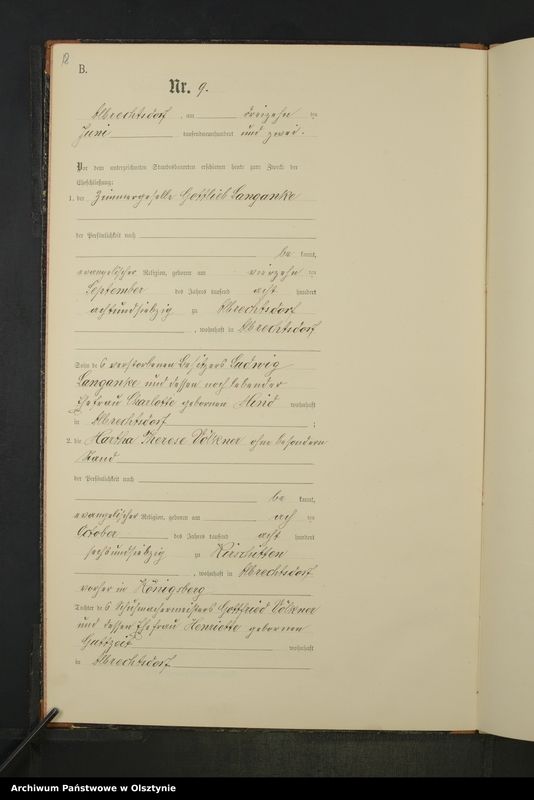 B.
Nr. 9.
Albrechtsdorf, am dreizehn ten
Juni tausendneunhundert und zwei.
Vor dem unterzeichneten Standesbeamten erschienen heute zum Zwecke der
Eheschließung:
1. der Zimmergeselle Gottlieb Langanke
der Persönlichkeit nach
be kannt,
evangelischer Religion, geboren am vierzehn ten
September des Jahres tausend acht hundert
achtundsiebzig zu Albrechtsdorf
, wohnhaft in Albrechtsdorf
Sohn des verstorbenen Besitzers Ludwig
Langanke und dessen noch lebender
Ehefrau Charlotte geborenen wohnhaft
in Albrechtsdorf ;
2. die Martha Therese Völkner ohne besondern
Stand
der Persönlichkeit nach
be kannt,
evangelischer Religion, geboren am ach ten
October des Jahres tausend acht hundert
sechsundsiebzig zu
, wohnhaft in Albrechtsdorf
vorher in Königsberg
Tochter des Schuhmachermeisters Gottfried Völkner
und dessen Ehefrau Henriette geborenen
Guttzeit wohnhaft
in Albrechtsdorf
Archiwum Państwowe w Olsztynie